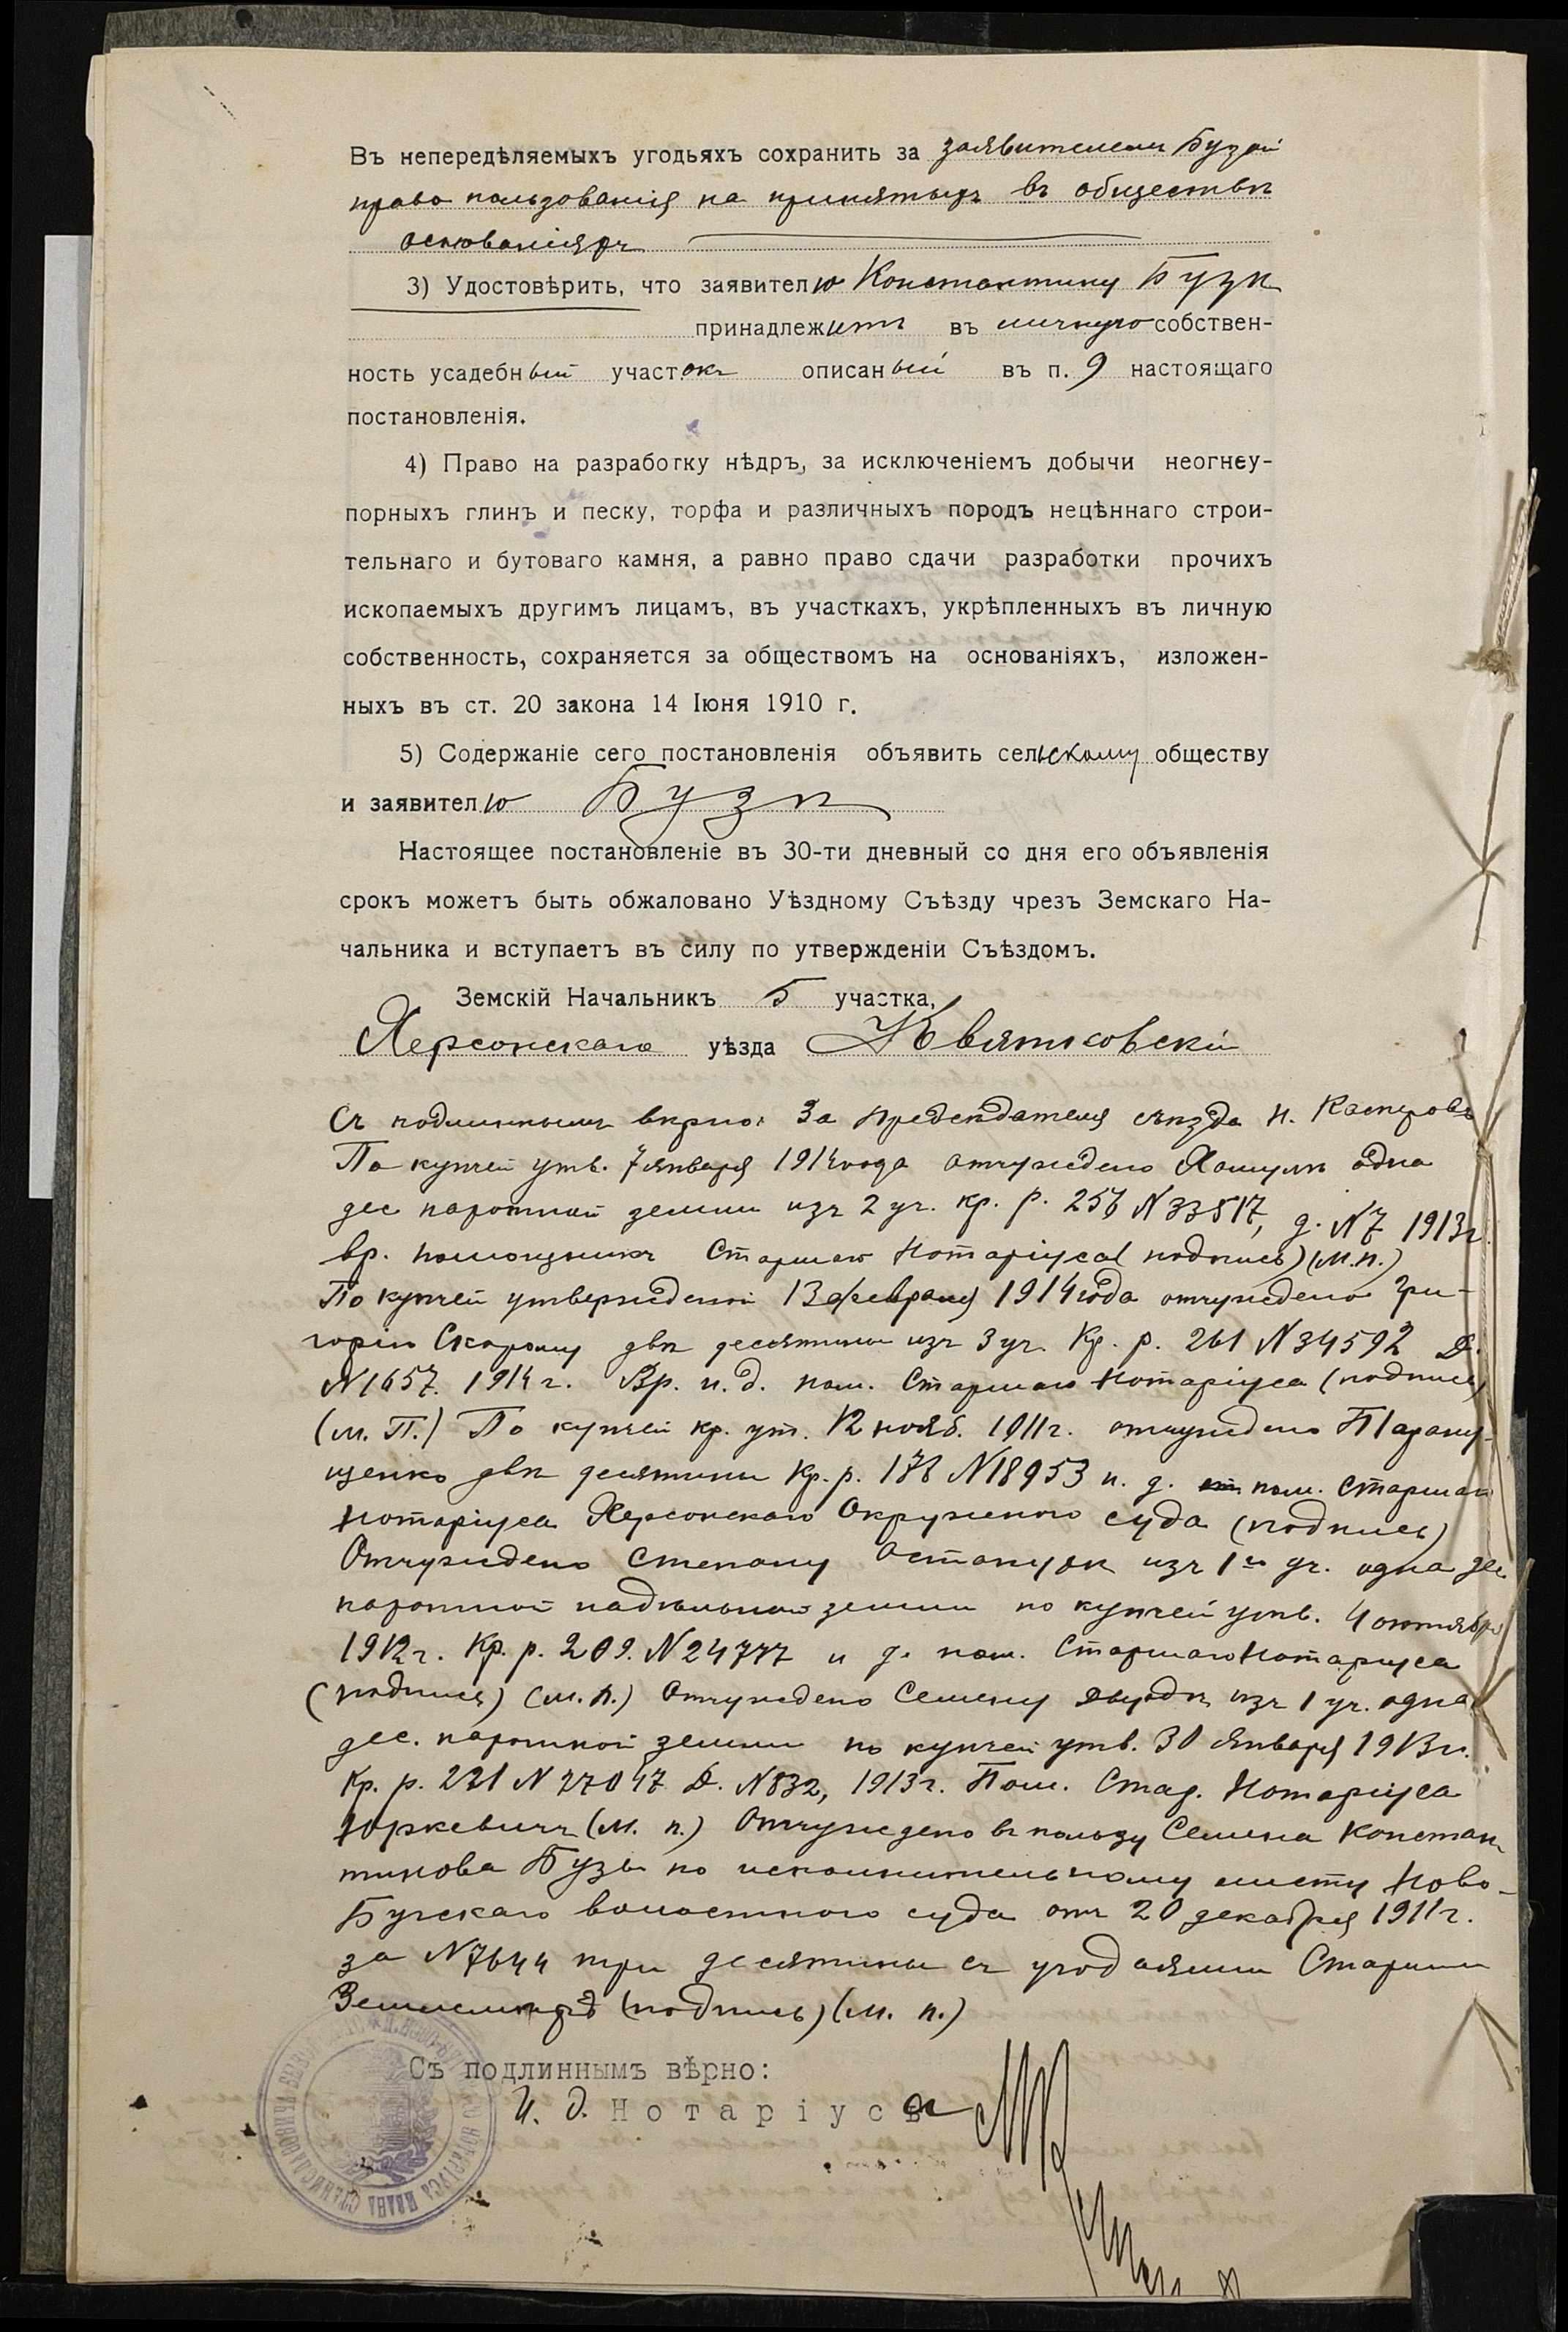 Въ непередѣляемыхъ угодьяхъ сохранить за заявителемъ Бузой
право пользованія на принятыхъ въ обществѣ
основаніяхъ
3) Удостовѣрить, что заявителю Константину Бузѣ
принадлежитъ въ личную собствен-
ность усадебный участокъ описаный въ п. 9 настоящаго
постановленія.
4) Право на разработку нѣдръ, за исключеніемъ добычи неогнеу-
порныхъ глинъ и песку, торфа и различныхъ породъ нецѣннаго строи-
тельнаго и бутоваго камня, а равно право сдачи разработки прочихъ
ископаемыхъ другимъ лицамъ, въ участкахъ, укрѣпленныхъ въ личную
собственность, сохраняется за обществомъ на основаніяхъ, изложен-
ныхъ въ ст. 20 закона 14 Іюня 1910 г.
5) Содержаніе сего постановленія объявить сельскому обществу
и заявителю Бузѣ
Настоящее постановленіе въ 30-ти дневный со дня его объявленія
срокъ можетъ быть обжаловано Уѣздному Съѣзду чрезъ Земскаго На-
чальника и вступаетъ въ силу по утвержденіи Съѣздомъ.
Земскій Начальникъ 5 участка,
Херсонскаго уѣзда Квятковскій
Съ подлиннымъ вѣрно: За предсѣдателя съѣзда Н. Касперовъ
По купчей утв. 7 января 1914 года отчуждено одна
дес паротной земли изъ 2 уч. кр. р. N 33517, д. N 7 1913 г.
вр. помощникъ Старшаго Нотаріуса (подпись) (м.п.)
По купчей утвержденной 13 февраля 1914 года отчуждено Гри-
горію Скорому двѣ десятины изъ 3 уч. Кр. р. 261 N 34592 д.
N 1657. 1914 г. Вр. и. д. пом. Старшаго Нотаріуса (подпись)
(М. П.) По купчей кр. ут. 12 нояб. 1911 г. отчуждено Таращ-
щенко двѣ десятины Кр. р. 178 N 18953 и. д. пом. Старшаго
Нотаріуса Херсонскаго Окружного суда (подпись)
Отчуждено Степану изъ 1го уч. одна дес
паротной надѣльной земли по купчей утв. 4 октября
1912 г. Кр. р. 209. N 24777 и д. пом. Старшаго Нотаріуса
(подпись) (м. п.) Отчуждено Семену изъ 1 уч. одна
дес. паротной земли по купчей утв. 30 января 1913 г.
Кр. р. 221 N 27047 Д. N 832, 1913 г. Пом. Стар. Нотаріуса
Юркевичъ (м. п.) Отчуждено въ пользу Семена Констан
тинова Бузы по исполнительному листу Ново-
Бугскаго волостного суда отъ 20 декабря 1911 г.
за N 7644 три десятины съ угодіями Старшій
Землемѣръ (подпись) (м. п.)
Съ подлиннымъ вѣрно:
И. д. Нотаріуса